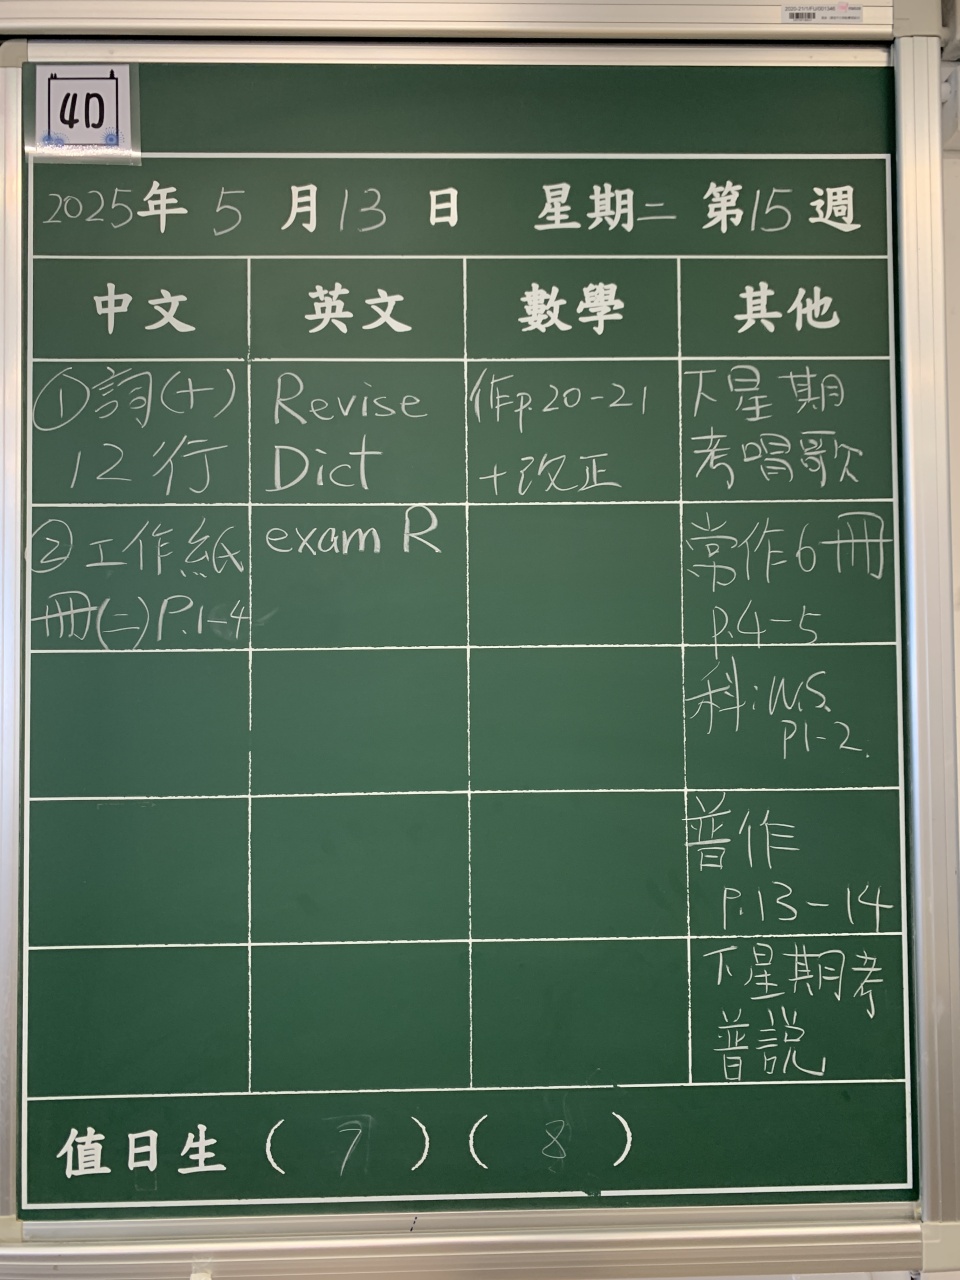 4D
2025年 5 月 13 日 星期二 第15週
中文 英文 數學 其他
①詞(十)
12行
Revise
Dict
作p.20-21
+改正
下星期
考唱歌
②工作紙
冊(二)P.1-4
exam R
常作6冊
p.4-5
科:W.S.
P1-2.
普作
p.13-14
下星期考
普説
值日生 ( 7 ) ( 8 )